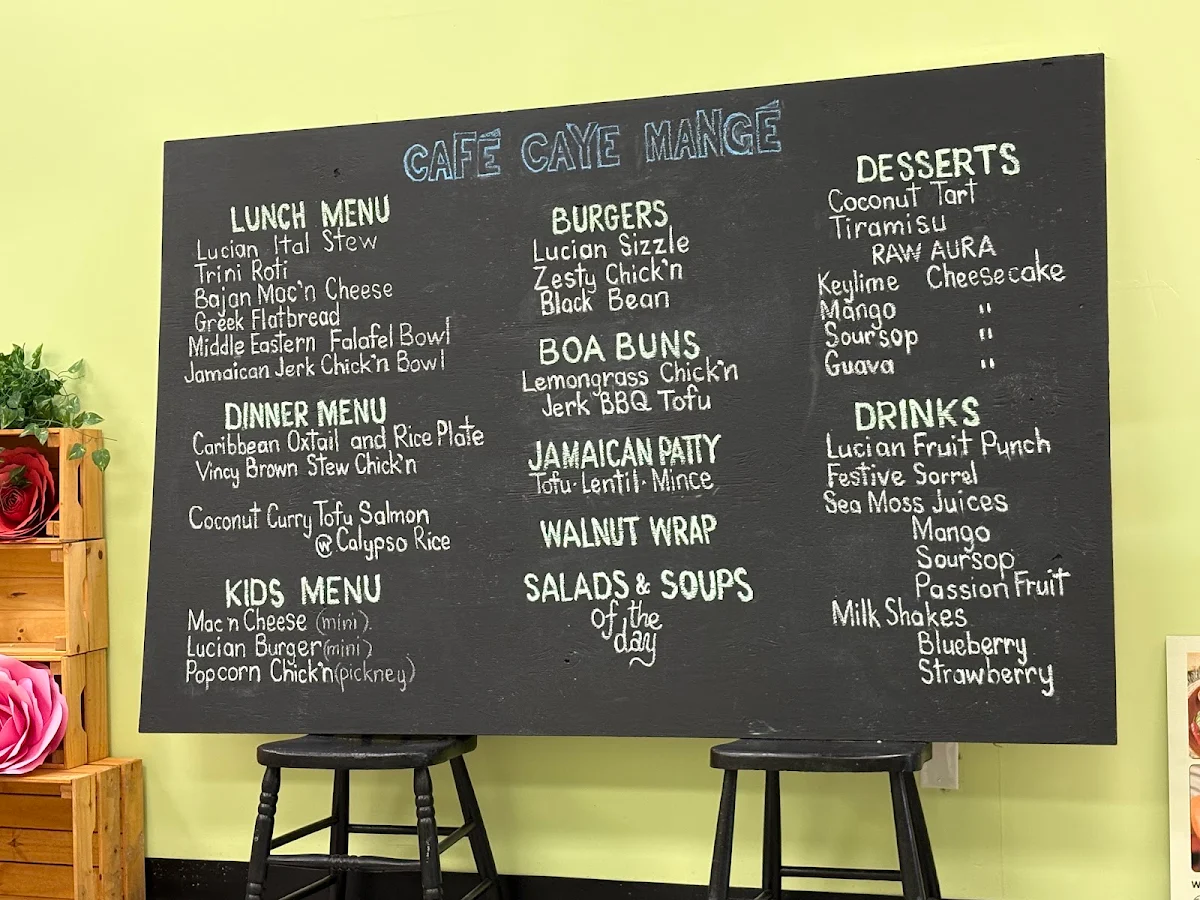 CAFÉ CAYE MANGÉ
LUNCH MENU
Lucian Ital Stew
Trini Roti
Bajan Mac'n Cheese
Greek Flatbread
Middle Eastern Falafel Bowl
Jamaican Jerk Chick'n Bowl
DINNER MENU
Caribbean Oxtail and Rice Plate
Vincy Brown Stew Chick'n
Coconut Curry Tofu Salmon
@ Calypso Rice
KIDS MENU
Mac n Cheese (mini)
Lucian Burger (mini)
Popcorn Chick'n (pickney)
BURGERS
Lucian Sizzle
Zesty Chick'n
Black Bean
BOA BUNS
Lemongrass Chick'n
Jerk BBQ Tofu
JAMAICAN PATTY
Tofu · Lentil · Mince
WALNUT WRAP
SALADS & SOUPS
of the
day
DESSERTS
Coconut Tart
Tiramisu
RAW AURA
Keylime Cheesecake
Mango "
Soursop "
Guava "
DRINKS
Lucian Fruit Punch
Festive Sorrel
Sea Moss Juices
Mango
Soursop
Passion Fruit
Milk Shakes
Blueberry
Strawberry